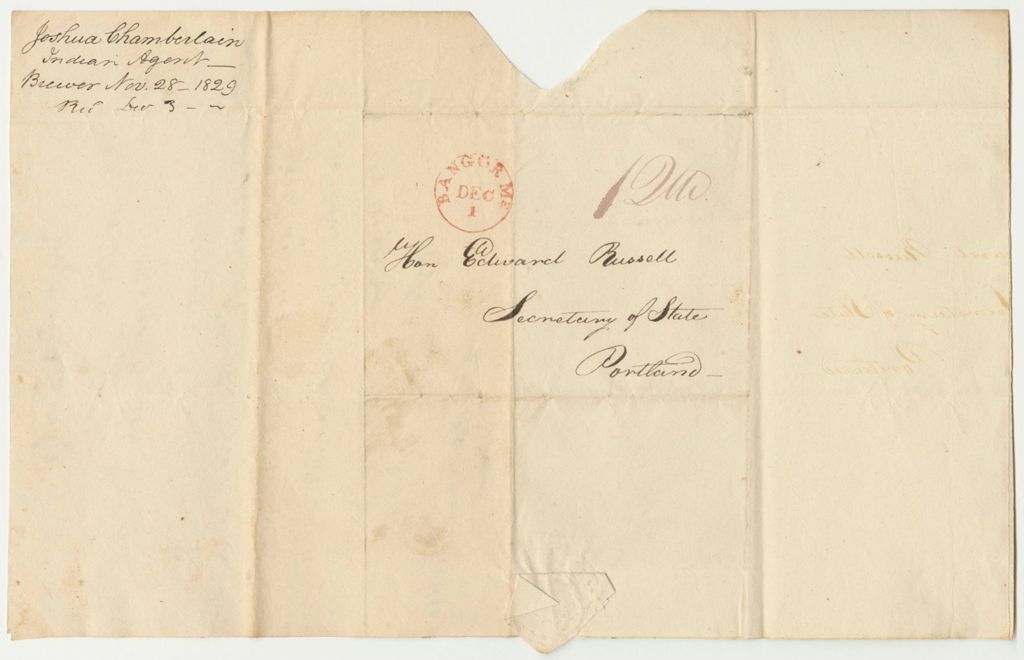 Joshua Chamberlain
Indian Agent
Brewer Nov. 28 - 1829
Rec Dec 3 -
BANGOR Me
DEC
1
Hon Edward Russell
Secretary of State
Portland